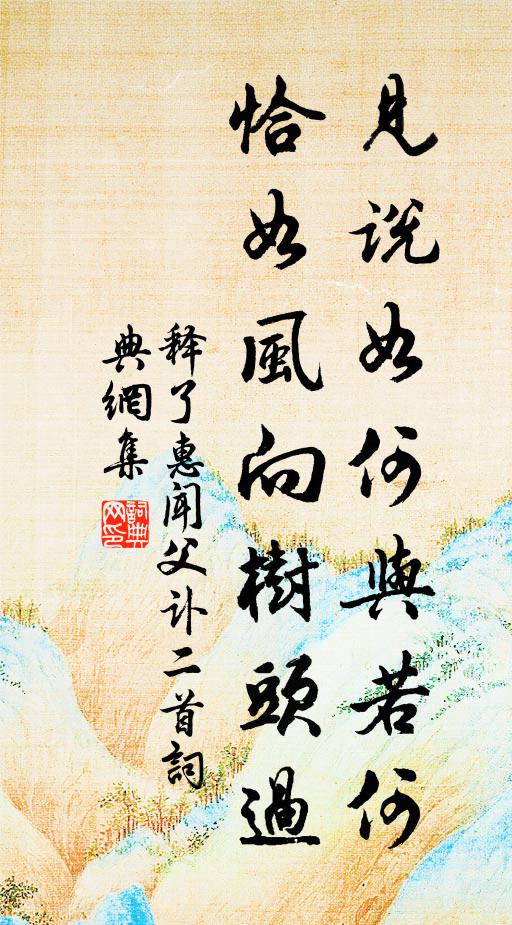 見説如何與若何
恰如風向樹頭過
释了惠聞父讣二首詞
典網集
詞典
网印